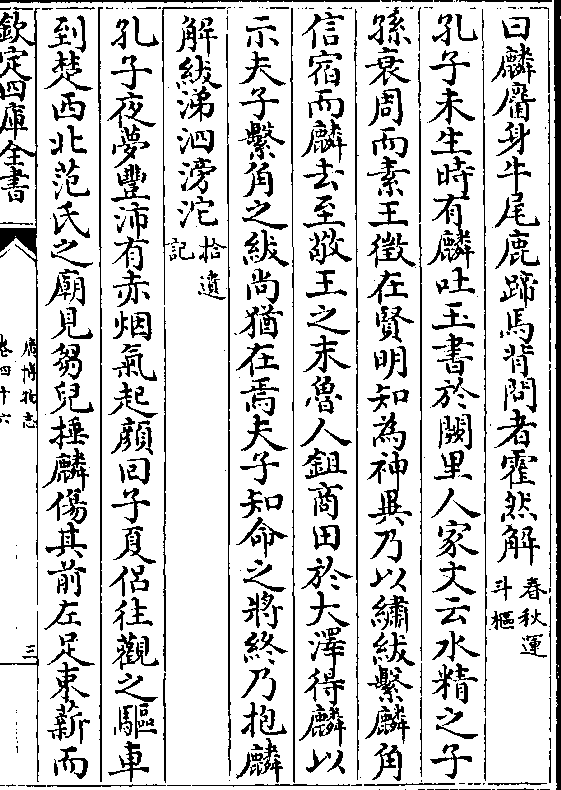 曰麟麕身牛尾鹿蹄馬背問者霍然解春秋運斗樞
孔子未生時有麟吐玉書於闕里人家文云水精之子
孫衰周而素王徵在賢明知為神異乃以繡紱繫麟角
信宿而麟去至敬王之末魯人鉏商田於大澤得麟以
示夫子繫角之紱尚猶在焉夫子知命之將終乃抱麟
解紱涕泗滂沱拾遺記
孔子夜夢豐沛有赤烟氣起顔回子夏侶往觀之驅車
到楚西北范氏之廟見芻兒捶麟傷其前左足束薪而
欽定四庫全書
廣博物志
卷四十六
三